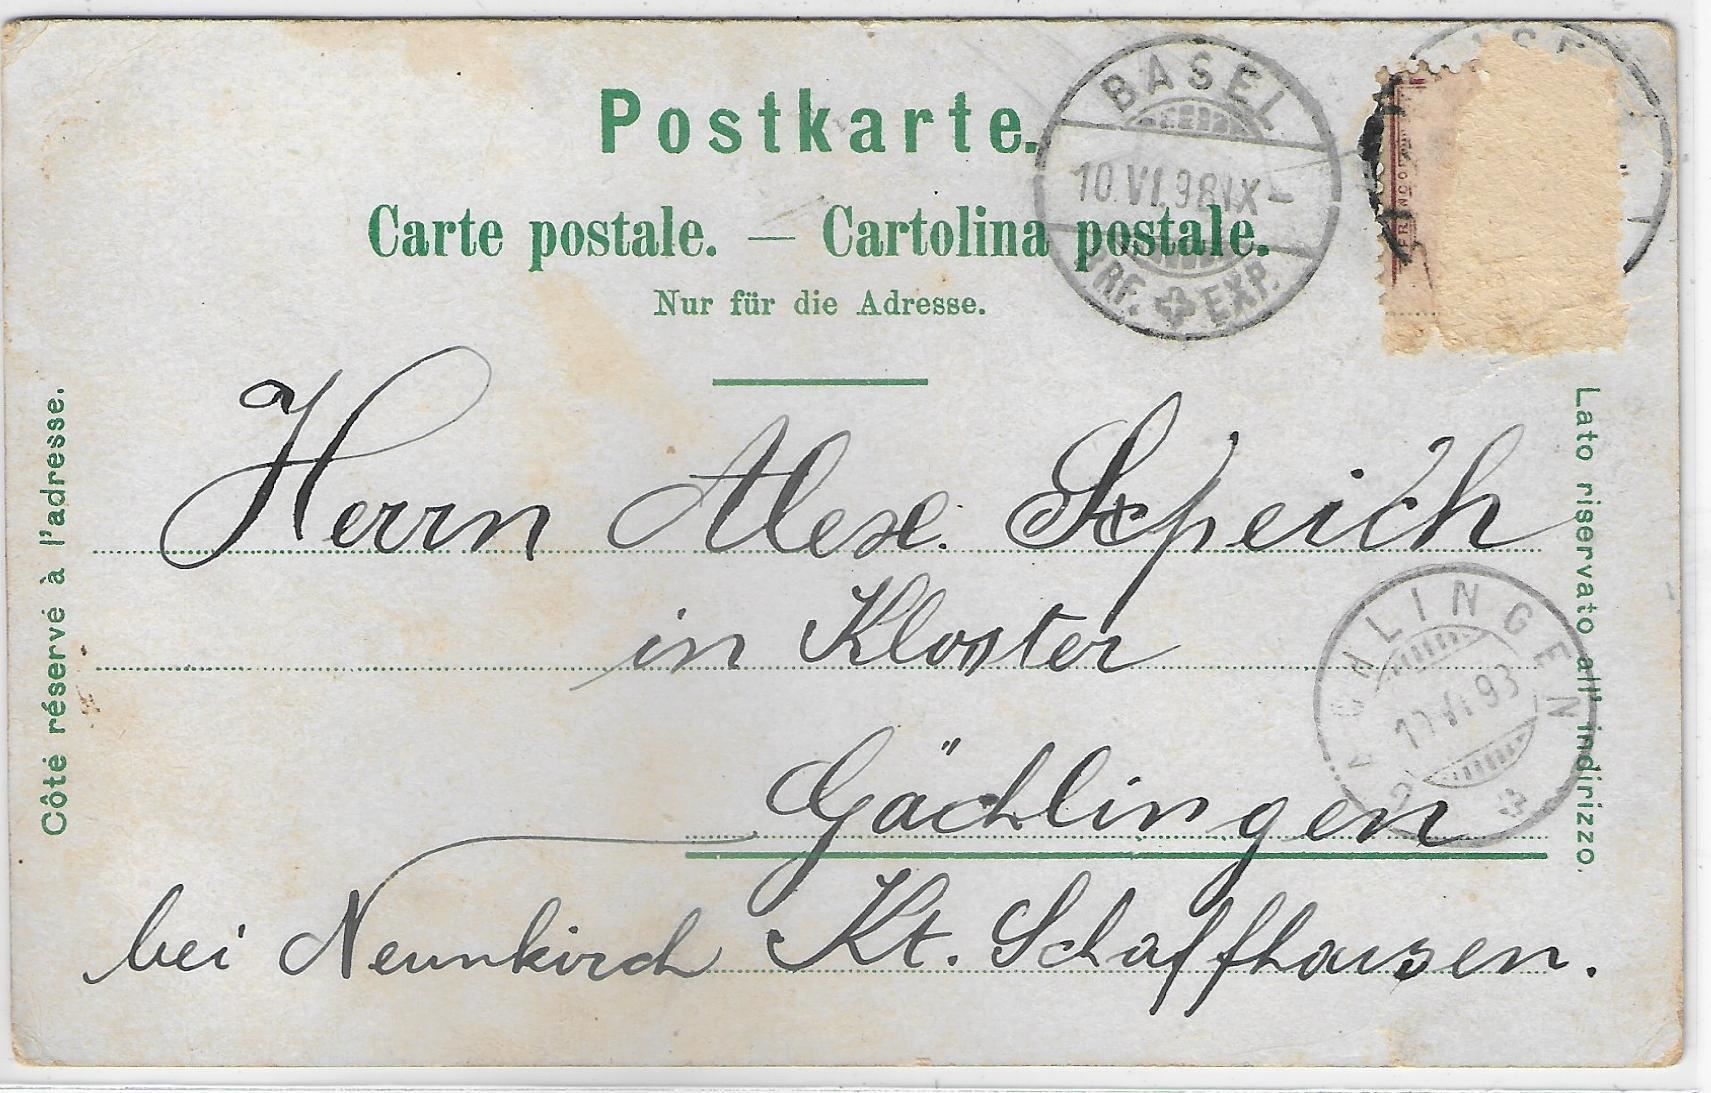 Postkarte.
Carte postale. — Cartolina postale.
Nur für die Adresse.
BASEL
10.VI.98.IX-
BRF. EXP.
FRANCO
Côté réservé à l'adresse.
Lato riservato all' indirizzo.
Herrn Alex. Speich
in Kloster
Gächlingen
bei Neunkirch Kt. Schaffhausen.
GÄCHLINGEN